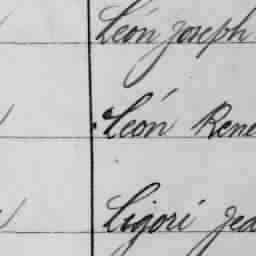 Léon Joseph
Léon Rene
Ligori Jea